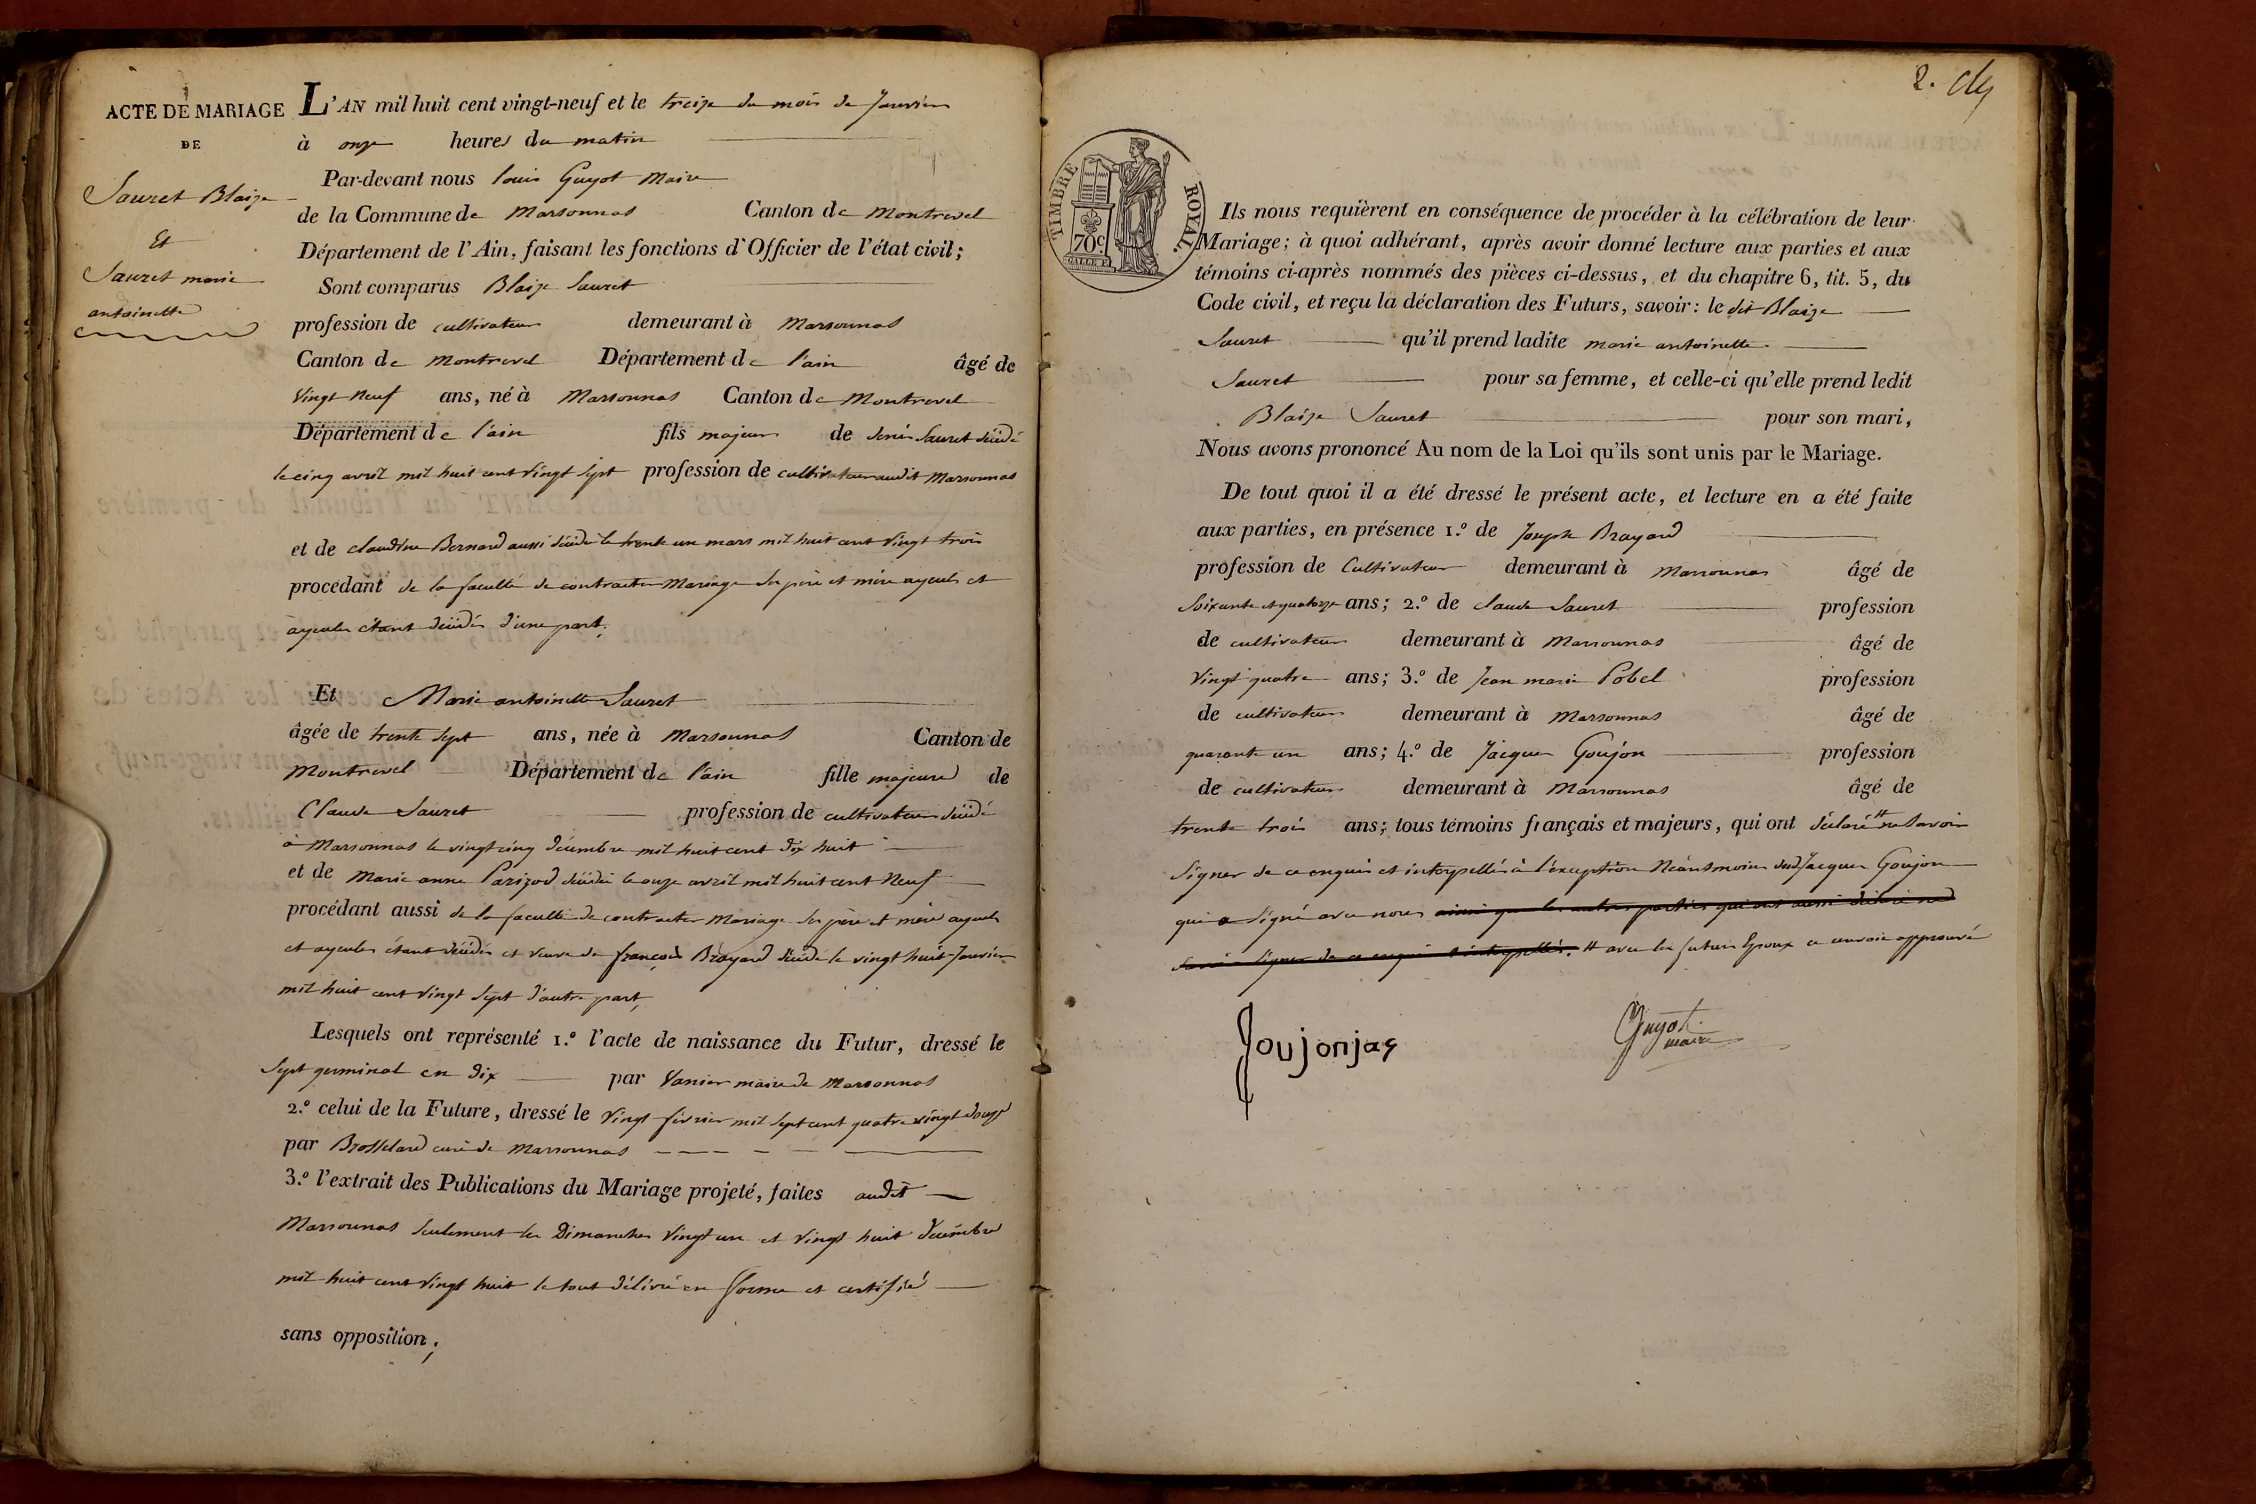 ACTE DE MARIAGE
DE
Sauret Blaize
Et
Sauret marie
antoinette
L'AN mil huit cent vingt-neuf et le treize du mois de Janvier
à onze heures du matin
Par-devant nous louis Guyot Maire
de la Commune de Marsonnas Canton de Montrevel
Département de l'Ain, faisant les fonctions d'Officier de l'état civil;
Sont comparus Blaize Sauret
profession de cultivateur demeurant à Marsonnas
Canton de Montrevel Département de l'ain âgé de
Vingt Neuf ans, né à Marsonnas Canton de Montrevel
Département de l'ain fils majeur de Denis Sauret décédé
le cinq avril mil huit cent vingt sept profession de cultivateur audit Marsonnas
et de claudine Bernard aussi décédée le trente un mars mil huit cent vingt trois
procédant de la faculté de contracter Mariage ses père et mère ayeuls et
ayeules étant décédés d'une part;
Et Marie antoinette Sauret
âgée de trente sept ans, née à Marsonnas Canton de
Montrevel Département de l'ain fille majeure de
Claude Sauret profession de cultivateur décédé
à Marsonnas le vingt cinq décembre mil huit cent dix huit
et de Marie anne Parizod décédée le onze avril mil huit cent Neuf
procédant aussi de la faculté de contracter Mariage ses père et mère ayeuls
et ayeules étant décédés et veuve de françois Brayard décédé le vingt huit Janvier
mil huit cent vingt sept d'autre part,
Lesquels ont représenté 1.º l'acte de naissance du Futur, dressé le
sept germinal en dix par Vanier maire de Marsonnas
2.º celui de la Future, dressé le vingt février mil sept cent quatre vingt douze
par Brosselard curé de Marsonnas
3.º l'extrait des Publications du Mariage projeté, faites audit
Marsonnas seulement les Dimanches vingt un et vingt huit décembre
mil huit cent vingt huit le tout délivré en forme et certifié
sans opposition;
2.
TIMBRE ROYAL
70c
Ils nous requièrent en conséquence de procéder à la célébration de leur
Mariage; à quoi adhérant, après avoir donné lecture aux parties et aux
témoins ci-après nommés des pièces ci-dessus, et du chapitre 6, tit. 5, du
Code civil, et reçu la déclaration des Futurs, savoir: le dit Blaize
Sauret qu'il prend ladite marie antoinette
Sauret pour sa femme, et celle-ci qu'elle prend ledit
Blaize Sauret pour son mari,
Nous avons prononcé Au nom de la Loi qu'ils sont unis par le Mariage.
De tout quoi il a été dressé le présent acte, et lecture en a été faite
aux parties, en présence 1.º de Joseph Brayard
profession de Cultivateur demeurant à Marsonnas âgé de
Soixante et quatorze ans; 2.º de claude Sauret profession
de cultivateur demeurant à Marsonnas âgé de
vingt quatre ans; 3.º de Jean marie Pobel profession
de cultivateur demeurant à Marsonnas âgé de
quarante un ans; 4.º de Jacques Goujon profession
de cultivateur demeurant à Marsonnas âgé de
trente trois ans; tous témoins français et majeurs, qui ont déclaré # ne savoir
signer de ce enquis et interpellés à l'exception Néantmoins dud. Jacques Goujon
qui a signé avec nous ainsi que les autres parties qui ont aussi déclaré ne
savoir signer de ce enquis et interpellés. # avec les futurs Epoux ce renvoi approuvé
Goujonjaq
Guyot
maire